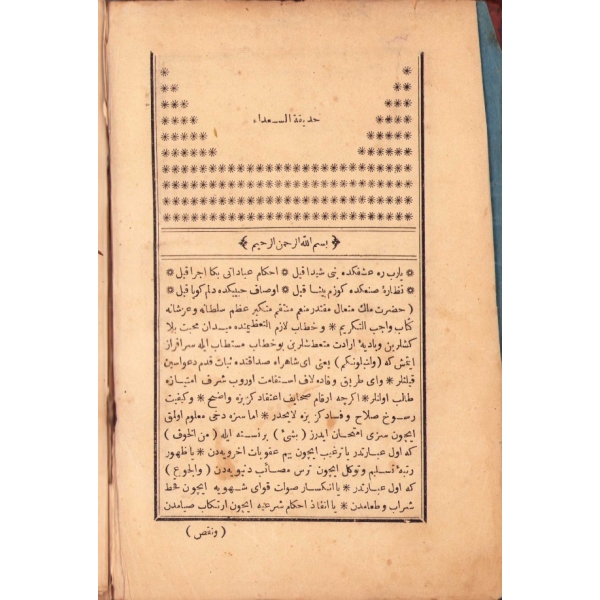 حديقة السعداء
بسم الله الرحمن الرحيم
يارب ره عشقكده بنى شيدا قيل ❋ احكام عباداتى بكا اجرا قيل ❋
❋ نظارهٔ صنعكده كوزم بينا قيل ❋ اوصاف حبيبكده دلم كويا قيل ❋
( حضرت ملك متعال مقتدر منعم منتقم متكبر عظم سلطانه وعز شانه
كتاب واجب التكريم ❋ وخطاب لازم التعظيمنده ميدان محبت بلا
كشلرين وباديهٔ ارادت متعطشلرين بو خطاب مستطاب ايله سرافراز
ايتمش كه ( ولنبلونكم ) يعنى اى شاهراه صداقتده ثبات قدم دعواسين
قيلنلر ❋ واى طريق وفاده لاف استقامت اوروب شرف امتيازه
طالب اولنلر ❋ اكرچه ارقام صحايف اعتقادكز بزه واضح ❋ وكيفيت
رسوخ صلاح وفسادكز بزه لايحدر ❋ اما سزه دخى معلوم اولمق
ايچون سزى امتحان ايدرز ( بشئ ) بر نسنه ايله ( من الخوف )
كه اول عبارتدر يا ترغيب ايچون بيم عقوبات اخرويه دن ❋ يا ظهور
رتبهٔ تسليم وتوكل ايچون ترس مصائب دنيويه دن ( والجوع )
كه اول عبارتدر ❋ يا انكسار صولت قواى شهويه ايچون قحط
شراب وطعامدن ❋ يا انقاذ احكام شرعيه ايچون ارتكاب صيامدن
( ونقص )